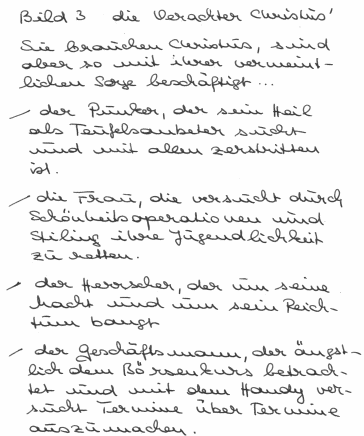 Bild 3 die Verachter Christus'
Sie brauchen Christus, sind
aber so mit ihrer vermeint-
lichen Sorge beschäftigt...
– der Punker, der sein Heil
als Teufelsanbeter sucht
und mit allen zerstritten
ist.
– die Frau, die versucht durch
Schönheitsoperationen und
Stiling ihre Jugendlichkeit
zu retten.
– der Herrscher, der um seine
Macht und um sein Reich-
tum bangt
– der Geschäftsmann, der ängst-
lich dem Börsenkurs betrach-
tet und mit dem Handy ver-
sucht Termine über Termine
auszumachen.